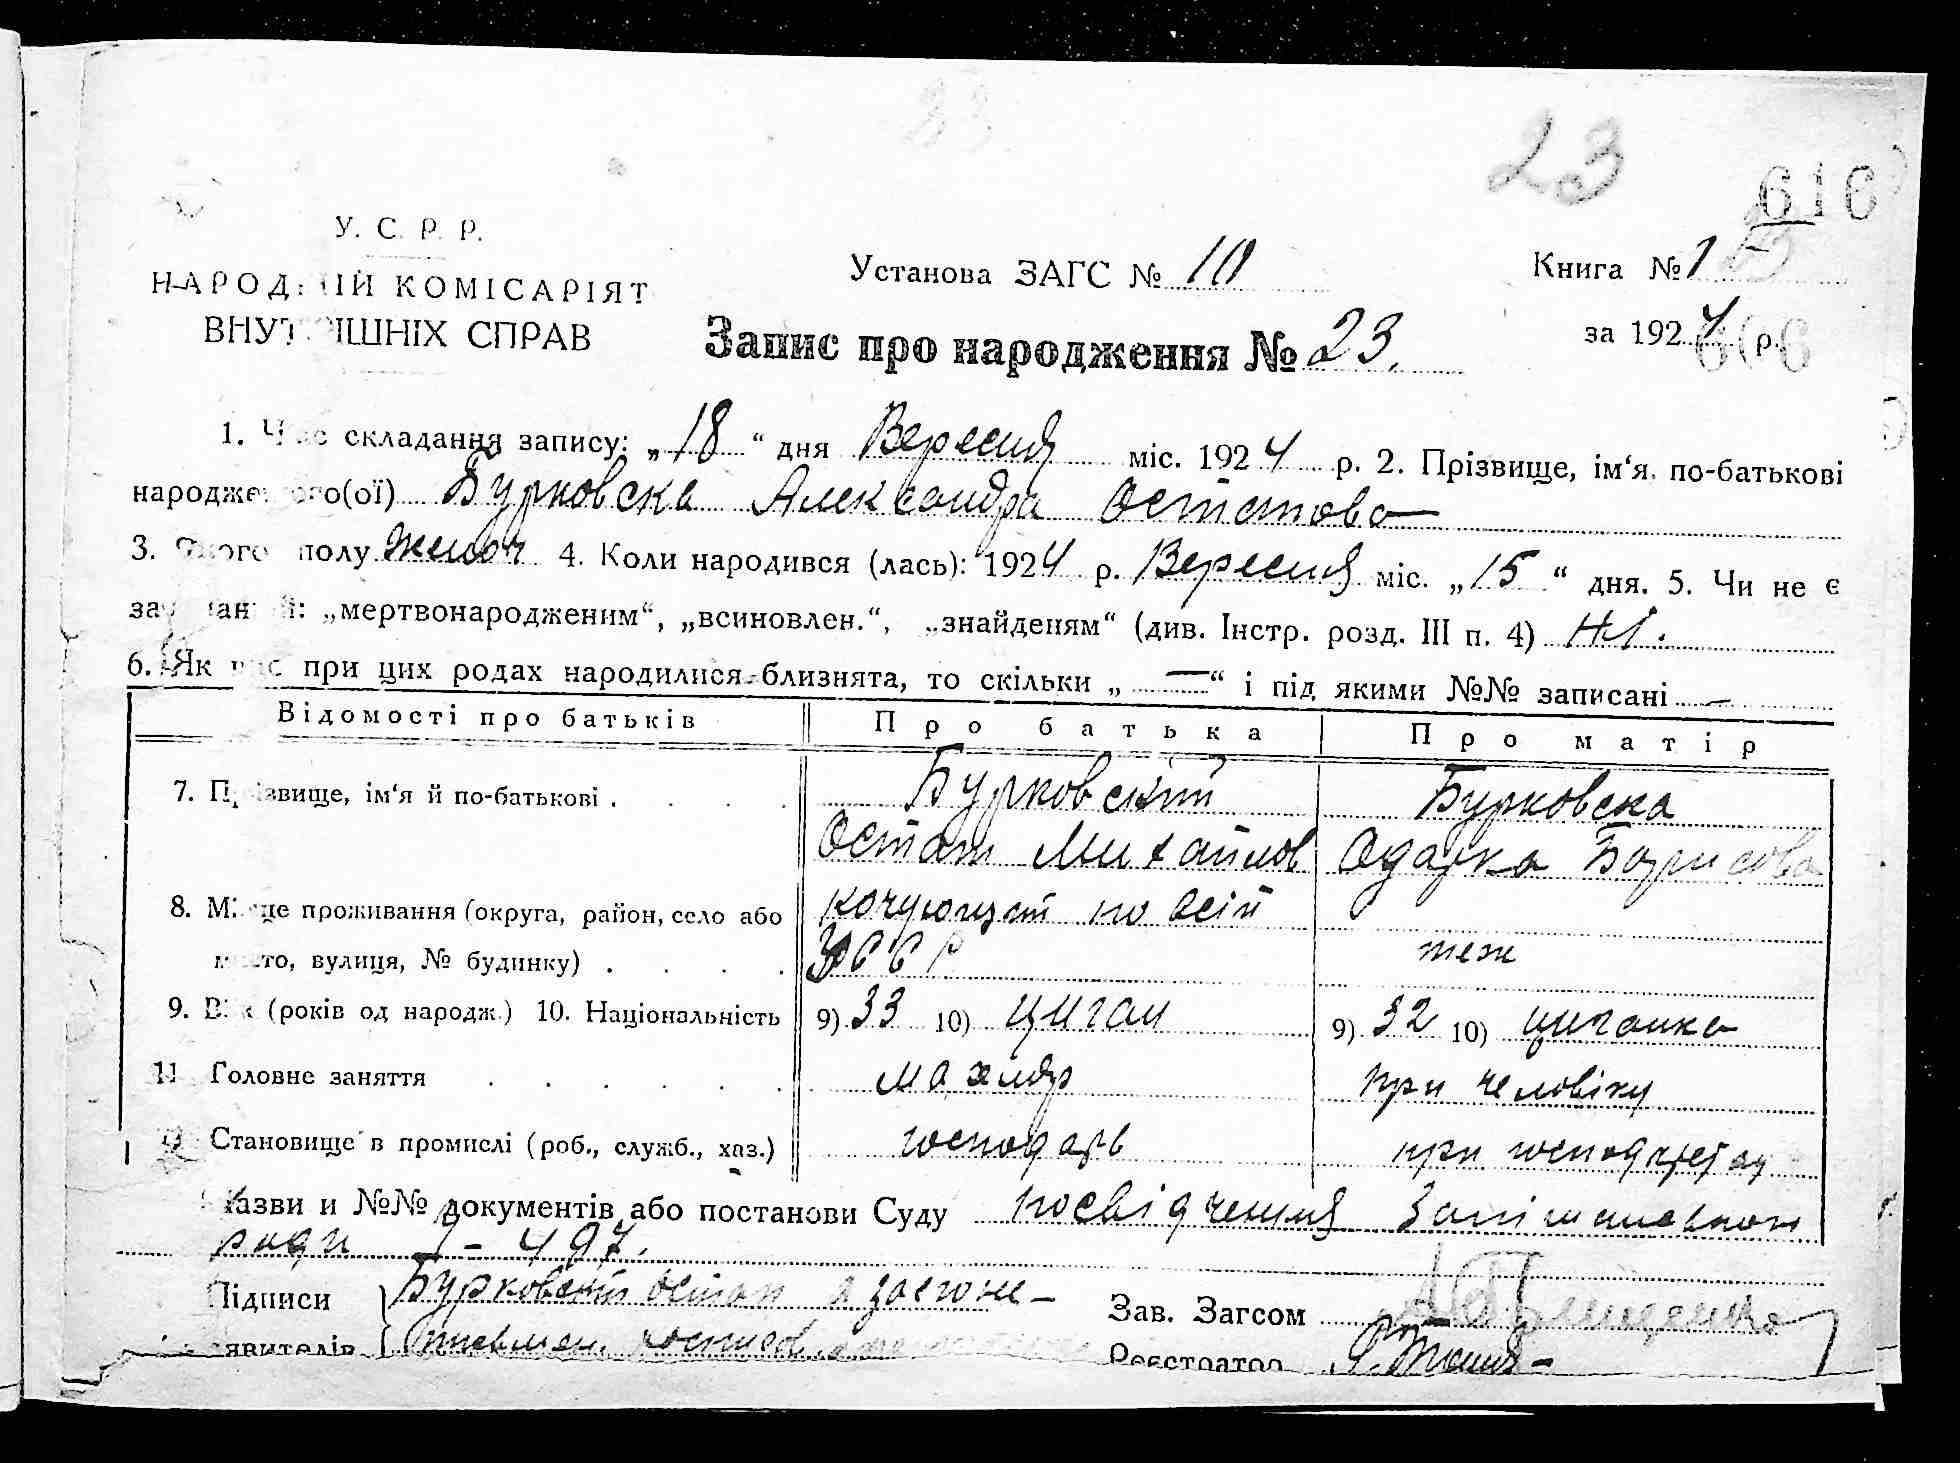 23
616
У. С. Р. Р.
НАРОДНІЙ КОМІСАРІЯТ
ВНУТРІШНІХ СПРАВ
Установа ЗАГС № 10
Книга № 1
за 1924 р.
606
Запис про народження № 23.
1. Час складання запису: „18“ дня Вересня міс. 1924 р. 2. Прізвище, ім‘я, по-батькові
народженого(ої) Бурковска Александра Остапова
3. Якого полу женоч 4. Коли народився (лась): 1924 р. Вересня міс. „15“ дня. 5. Чи не є
: „мертвонародженим“, „всиновлен.“, „знайденям“ (див. Інстр. розд. III п. 4) Ні.
6. Як при цих родах народилися близнята, то скільки „—“ і під якими №№ записані —
Відомості про батьків Про батька Про матір
7. Прізвище, ім‘я й по-батькові . . . . Бурковскій Бурковска
Остап Михайлов Одарка Борисова
8. Місце проживання (округа, район, село або кочуюцѣт по всій
место, вулиця, № будинку) . . . . УССР теж
9. Вік (років од народж.) 10. Національність 9) 33 10) циган 9) 32 10) циганка
11 Головне заняття . . . . . . махляр при человіку
Становище в промислі (роб., служб., хаз.) господарь при господарстві
Назви и №№ документів або постанови Суду посвідчення
ради 497.
Підписи Бурковскій Остап а за его не— Зав. Загсом
явителів Реєстратор